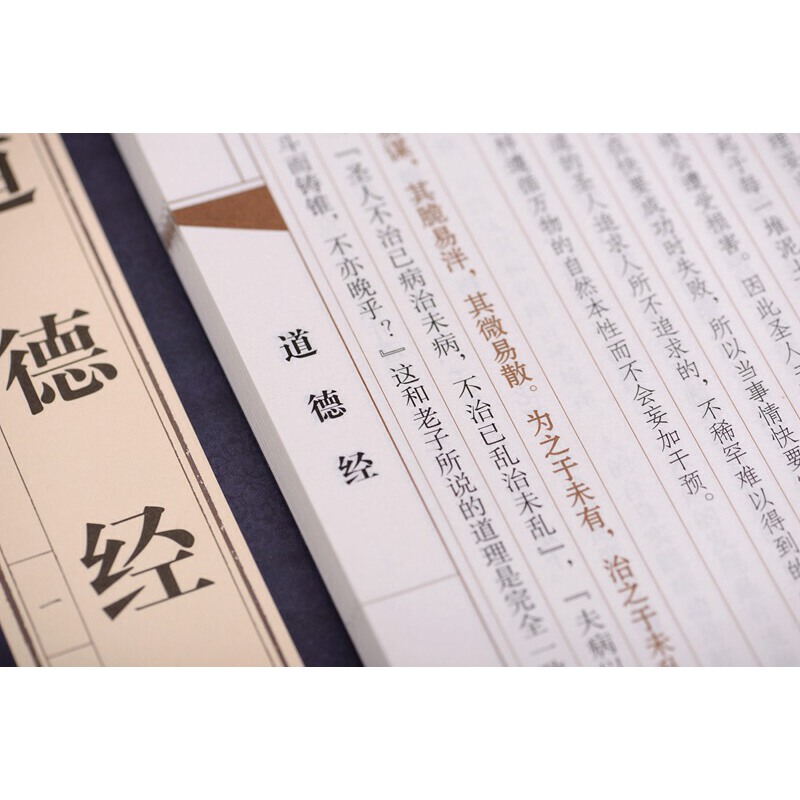 起于每一堆泥
会遭受损害。因此圣人
在快要成功时失败，所以当事情快要
道的圣人追求人所不追求的，不稀罕难以得到的
样遵循万物的自然本性而不会妄加干预。
谋，其脆易泮，其微易散。为之于未有，治之于未
『圣人不治已病治未病，不治已乱治未乱』，『夫病
斗而铸锥，不亦晚乎？』这和老子所说的道理是完全一
道德经
道德经
一